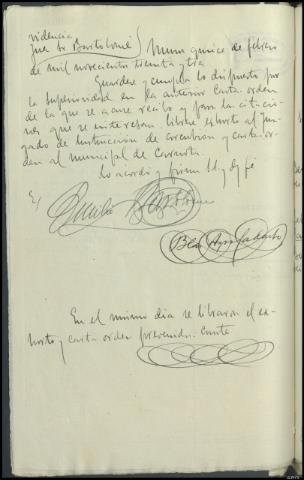 videncia
Juez Sr Bartolomé / Muros quince de febrero
de mil novecientos treinta y tres
Guardese y cumpla lo dispuesto por
la Superioridad en la anterior carta orden
de la que se acuse recibo y para la citacio
nes que se interesan librese exhorto al Juz
gado de Instrucción de Corcubion y carta or
den al municipal de Carnota
Lo acordó y firma S.S. y doy fé
E/
Bartolomé
En el mismo dia se libraron el ex-
horto y carta orden prevenido. Conste